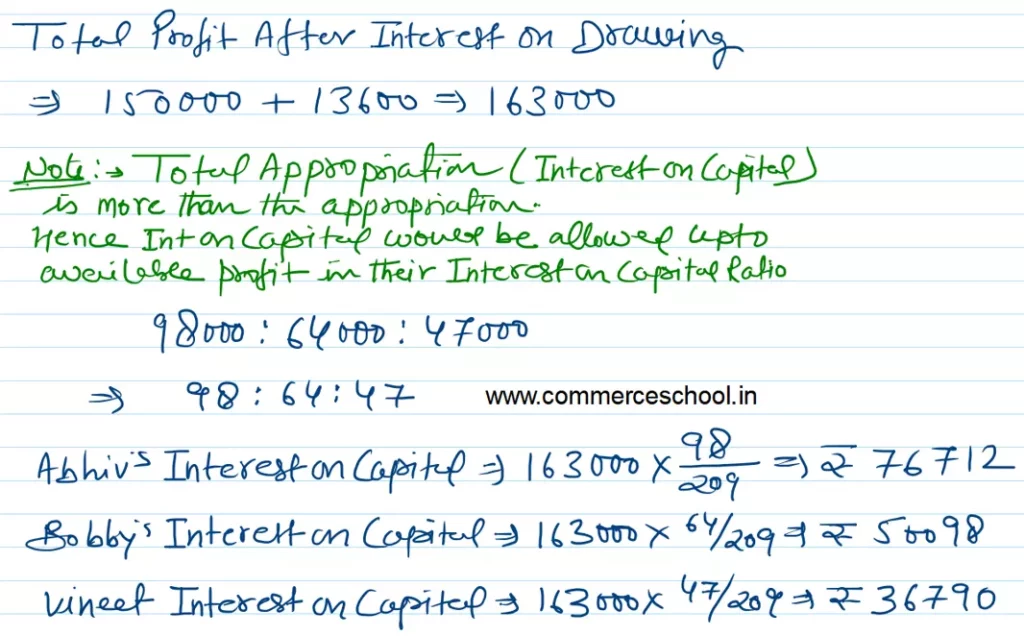 Total Profit After Interest on Drawing
⇒ 150000 + 13600 ⇒ 163000
Note:→ Total Appropriation (Interest on Capital)
is more than the appropriation.
Hence Int on Capital would be allowed upto
available profit in their Interest on Capital Ratio
98000 : 64000 : 47000
⇒ 98 : 64 : 47
www.commerceschool.in
Abhiv's Interest on Capital ⇒ 163000 × 98/209 ⇒ ₹ 76712
Bobby's Interest on Capital ⇒ 163000 × 64/209 ⇒ ₹ 50098
Vineet Interest on Capital ⇒ 163000 × 47/209 ⇒ ₹ 36790